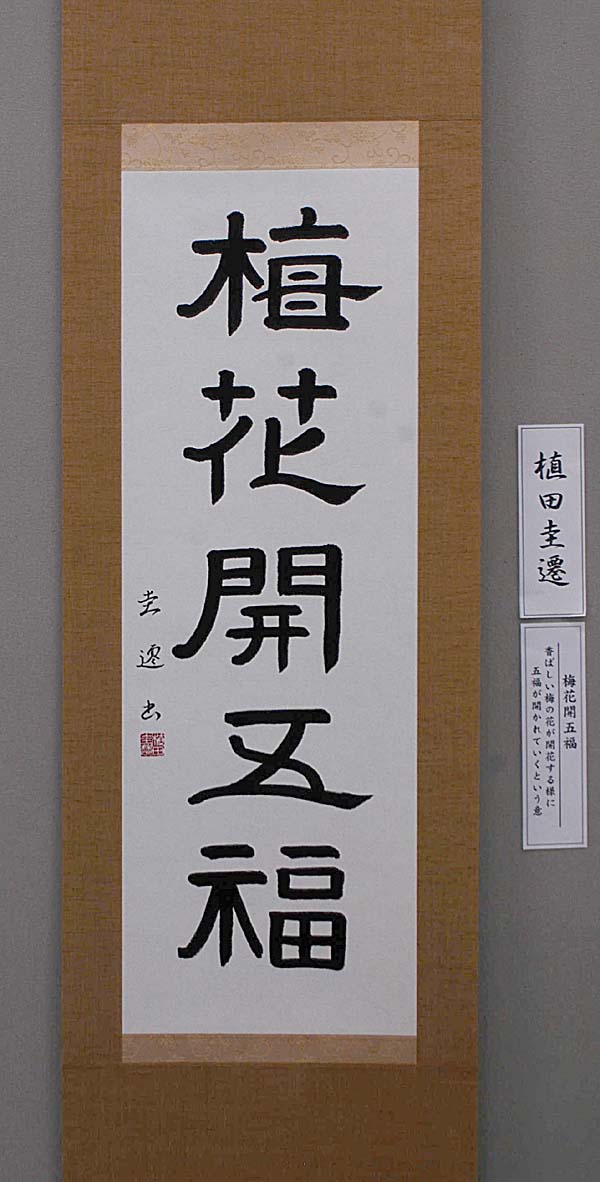 梅花開五福
圭遷書
植田圭遷
梅花開五福
香ばしい梅の花が開花する様に
五福が開かれていくという意